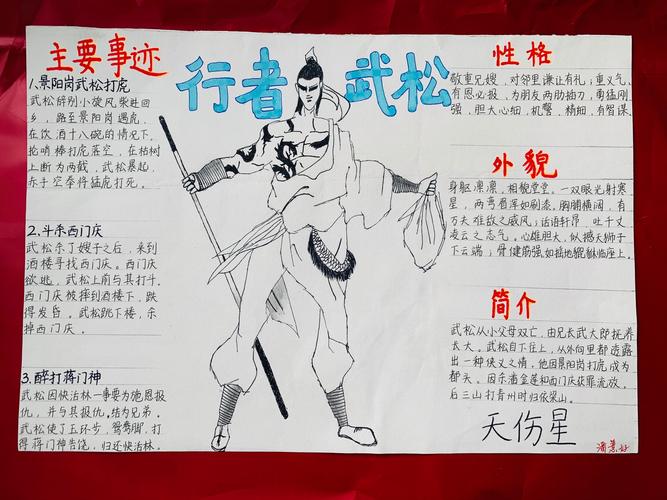 行者武松
主要事迹
1.景阳岗武松打虎
武松辞别小旋风柴进回
乡，路至景阳岗遇虎，
在饮酒十八碗的情况下，
抡哨棒打虎落空，在枯树
上断为两截，武松暴起，
赤手空拳将猛虎打死。
2.斗杀西门庆
武松杀了嫂子之后，来到
酒楼寻找西门庆。西门庆
欲逃，武松上前与其打斗。
西门庆被摔到酒楼下，跌
得发昏。武松跳下楼，杀
掉西门庆。
3.醉打蒋门神
武松因快活林一事要为施恩报
仇，并与其报仇。结为兄弟。
武松使了五环步，鸳鸯脚，打
得蒋门神告饶，归还快活林。
性格
敬重兄嫂，对邻里谦让有礼；重义气、
有恩必报，为朋友两肋插刀，勇猛刚
强，胆大心细，机警，精细，有智谋。
外貌
身躯凛凛，相貌堂堂。一双眼光射寒
星，两弯眉浑如刷漆。胸脯横阔，有
万夫难敌之威风；话语轩昂，吐千丈
凌云之志气。心雄胆大，似撼天狮子
下云端；骨健筋强，如摇地貔貅临座上。
简介
武松从小父母双亡，由兄长武大郎抚养
长大。武松自下往上，从外向里都透露
出一种侠义之情。他因景阳岗打虎成为
都头。因杀潘金莲和西门庆获罪流放。
后三山打青州时归依梁山。
天伤星